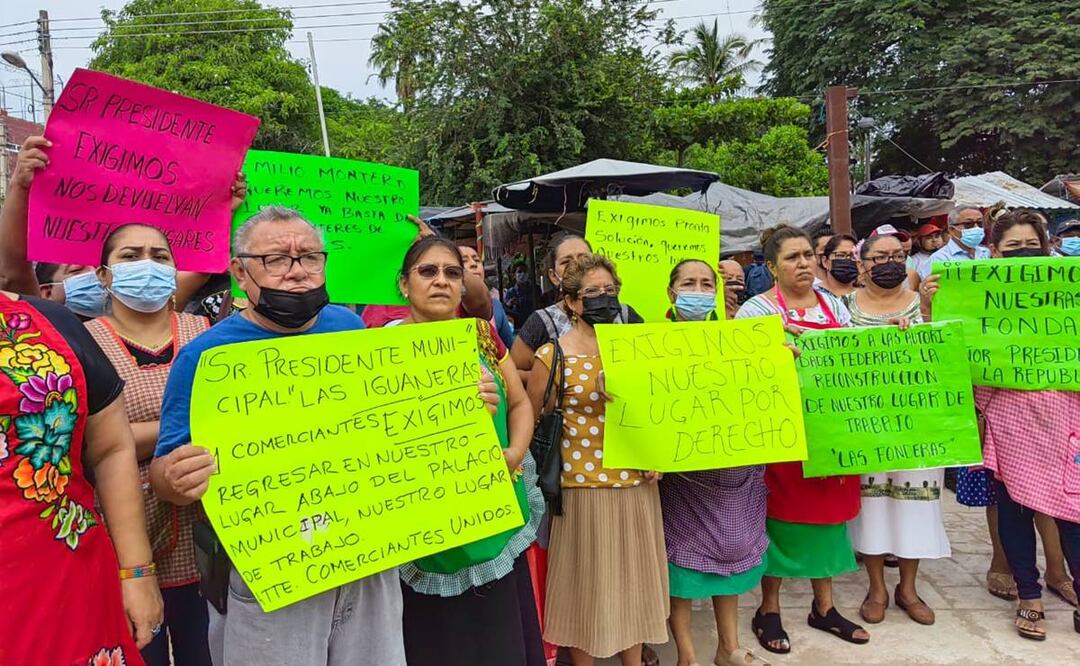 SR PRESIDENTE
EXIGIMOS
NOS DEVUELVAN
NUESTROS LUGARES
MILIO MONTERO
QUEREMOS NUESTRO
YA BASTA
DE
Exigimos Pronta
Solución, Queremos
"SR. PRESIDENTE MUNI-
CIPAL" LAS IGUANERAS
Y COMERCIANTES EXIGIMOS
REGRESAR EN NUESTRO-
LUGAR ABAJO DEL PALACIO
MUNICIPAL, NUESTRO LUGAR
DE TRABAJO.
ATTE. COMERCIANTES UNIDOS.
EXIGIMOS
NUESTRO
LUGAR POR
DERECHO
EXIGIMOS A LAS AUTORI-
DADES FEDERALES LA
RECONSTRUCCION
DE NUESTRO LUGAR DE
TRABAJO
"LAS FONDERAS"
NUESTRAS
FONDA
POR PRESID
LA REPUBLI